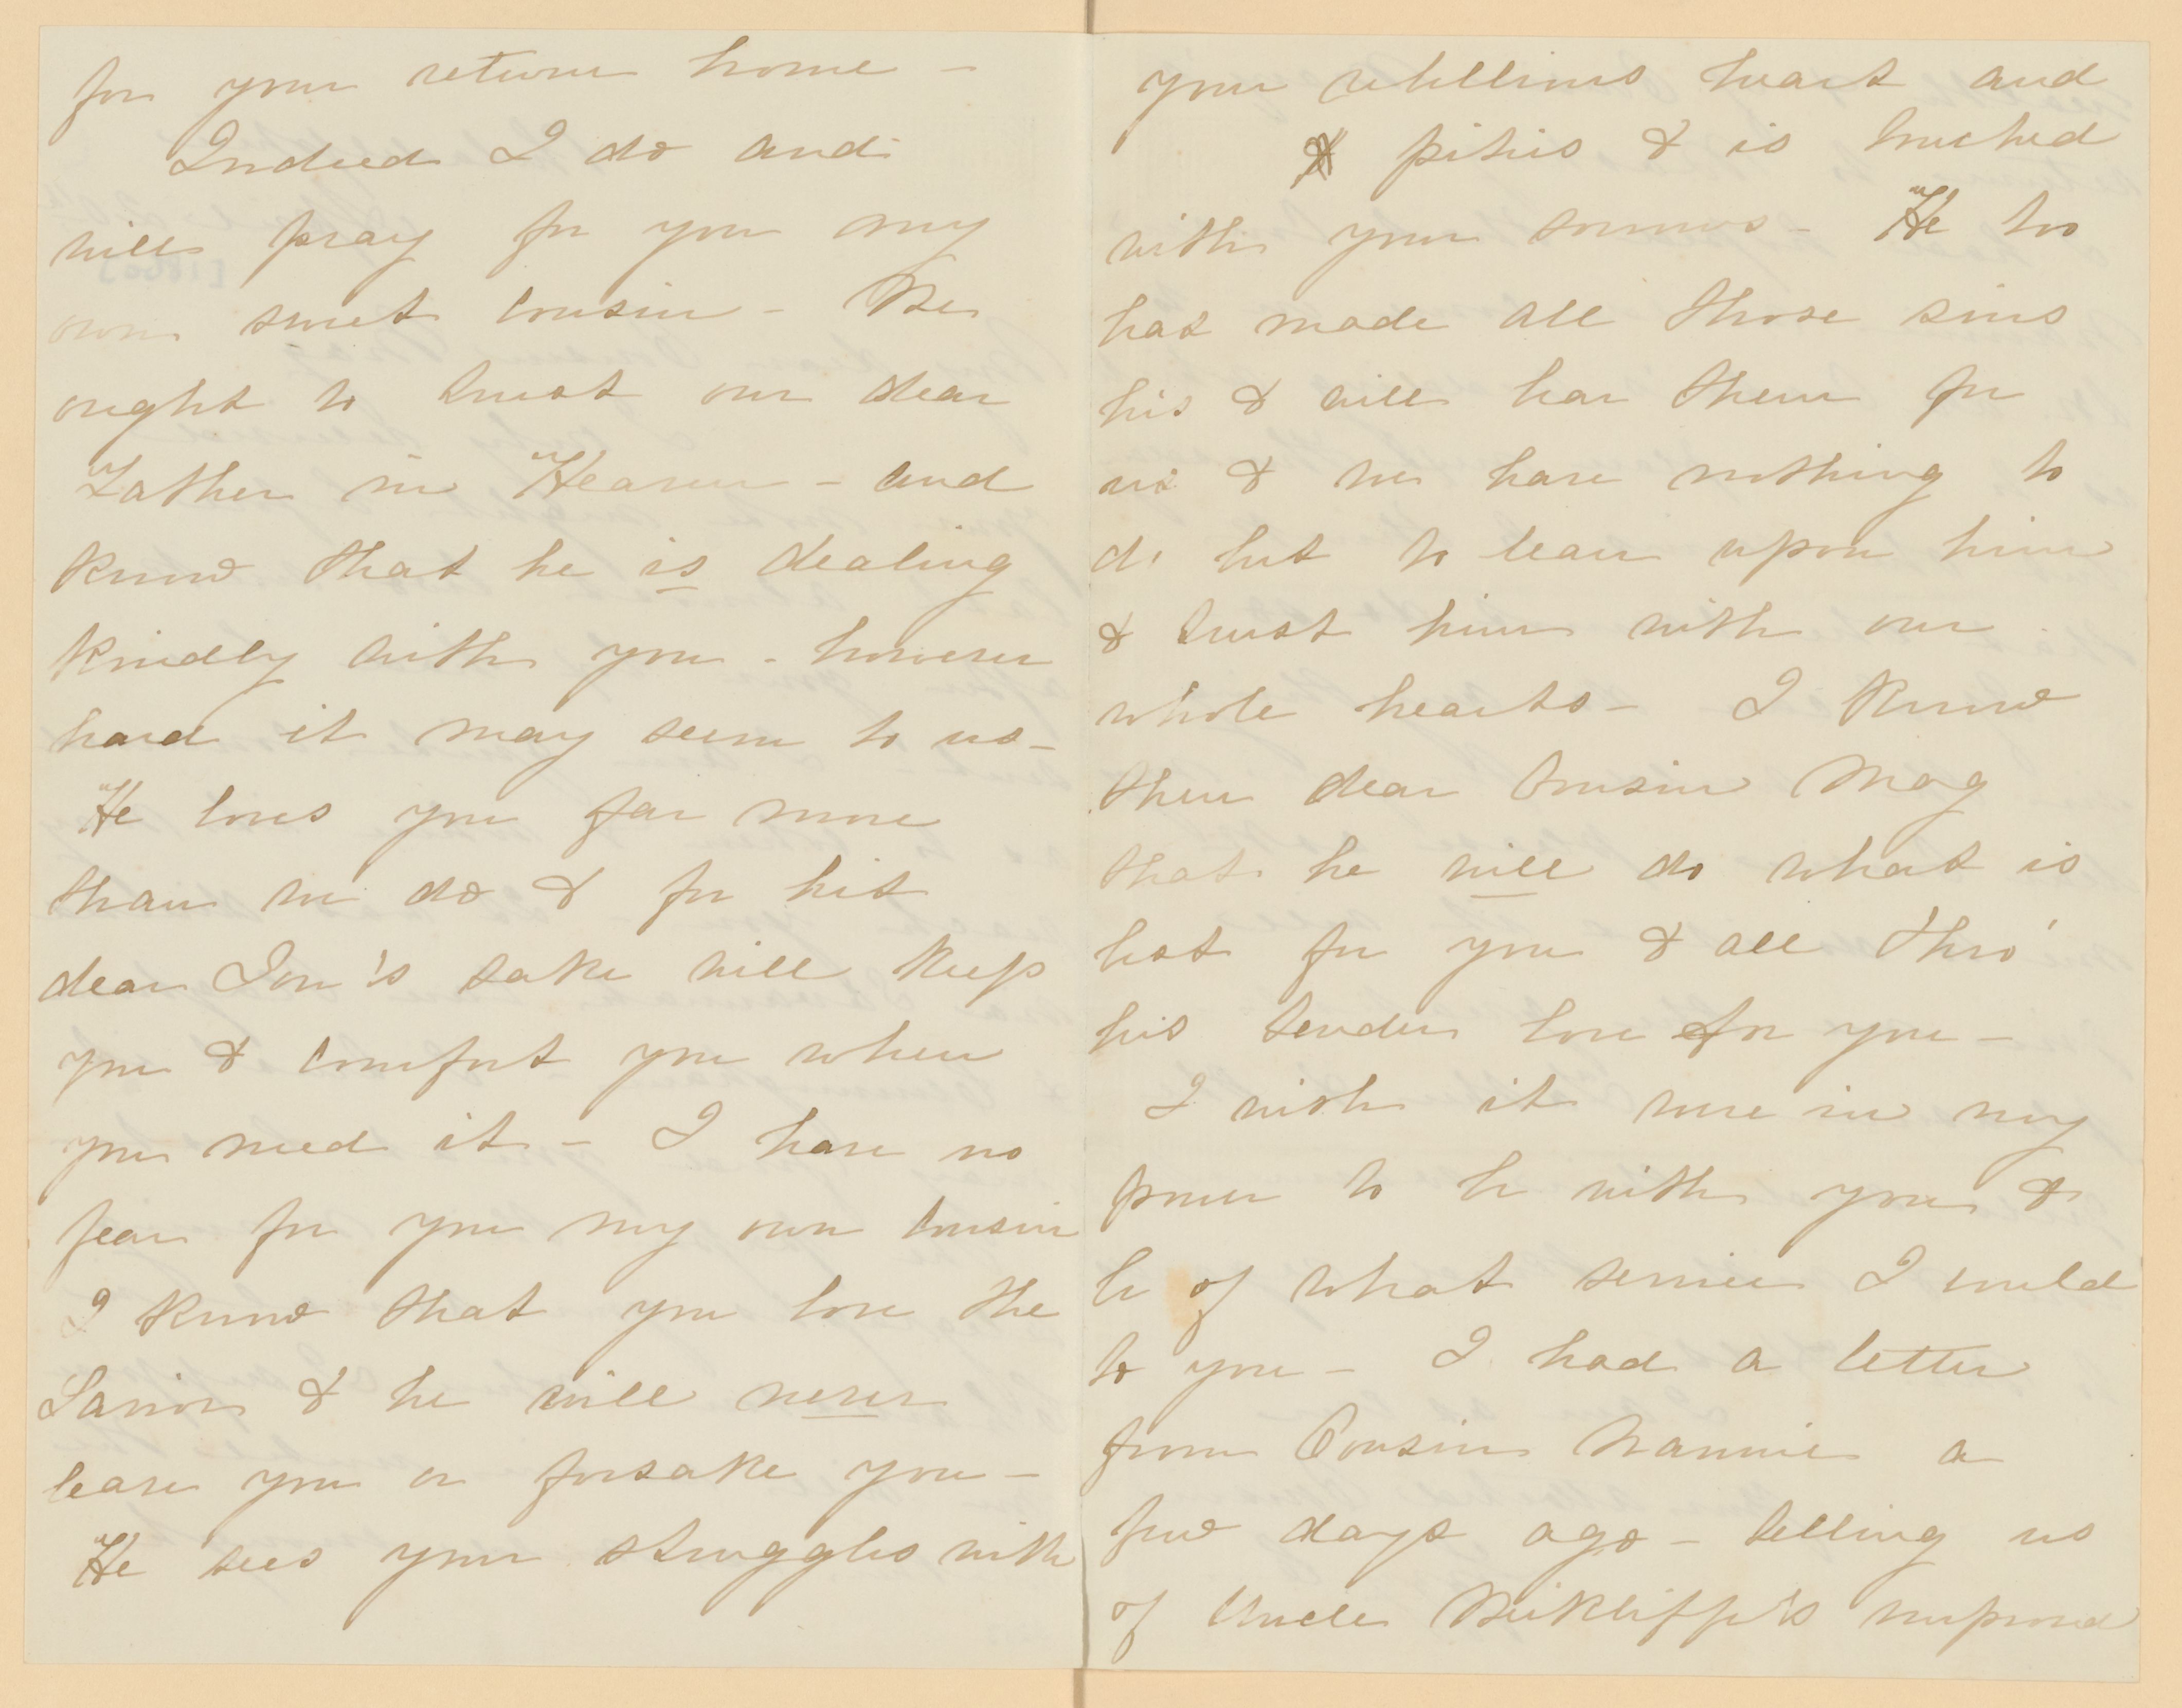 for your return home -
Indeed I do and
will pray for you my
own sweet cousin - We
ought to trust our dear
Father in Heaven - and
know that he is dealing
kindly with you - however
hard it may seem to us -
He loves you far more
than we do & for his
dear Son's sake will keep
you & comfort you when
you need it - I have no
fear for you my own cousin
I know that you love the
Savior & he will never
leave you or forsake you -
He sees your struggles with
your rebellious heart and
pities & is touched
with your sorrows - He too
has made all those sins
his & will bear them for
us & we have nothing to
do but to lean upon him
& trust him with our
whole hearts - I know
then dear Cousin Mag
that he will do what is
best for you & all thro'
his tender love for you -
I wish it were in my
power to be with you &
be of what service I could
to you - I had a letter
from Cousin Nannie a
few days ago - telling us
of Uncle Wickliffe's improved